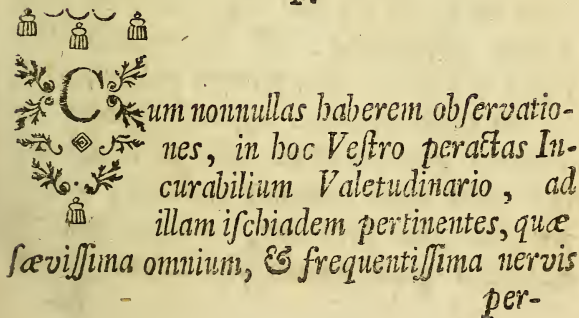 Cum nonnullas haberem obſervatio-
nes, in hoc Veſtro peractas In-
curabilium Valetudinario, ad
illam iſchiadem pertinentes, quæ
ſæviſſima omnium, & frequentiſſima nervis
per-